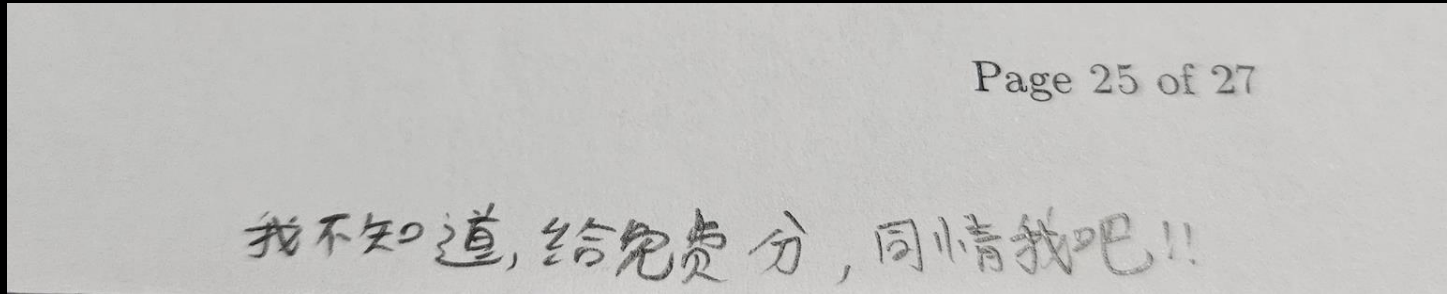 Page 25 of 27
我不知道,给免费分,同情我吧!!